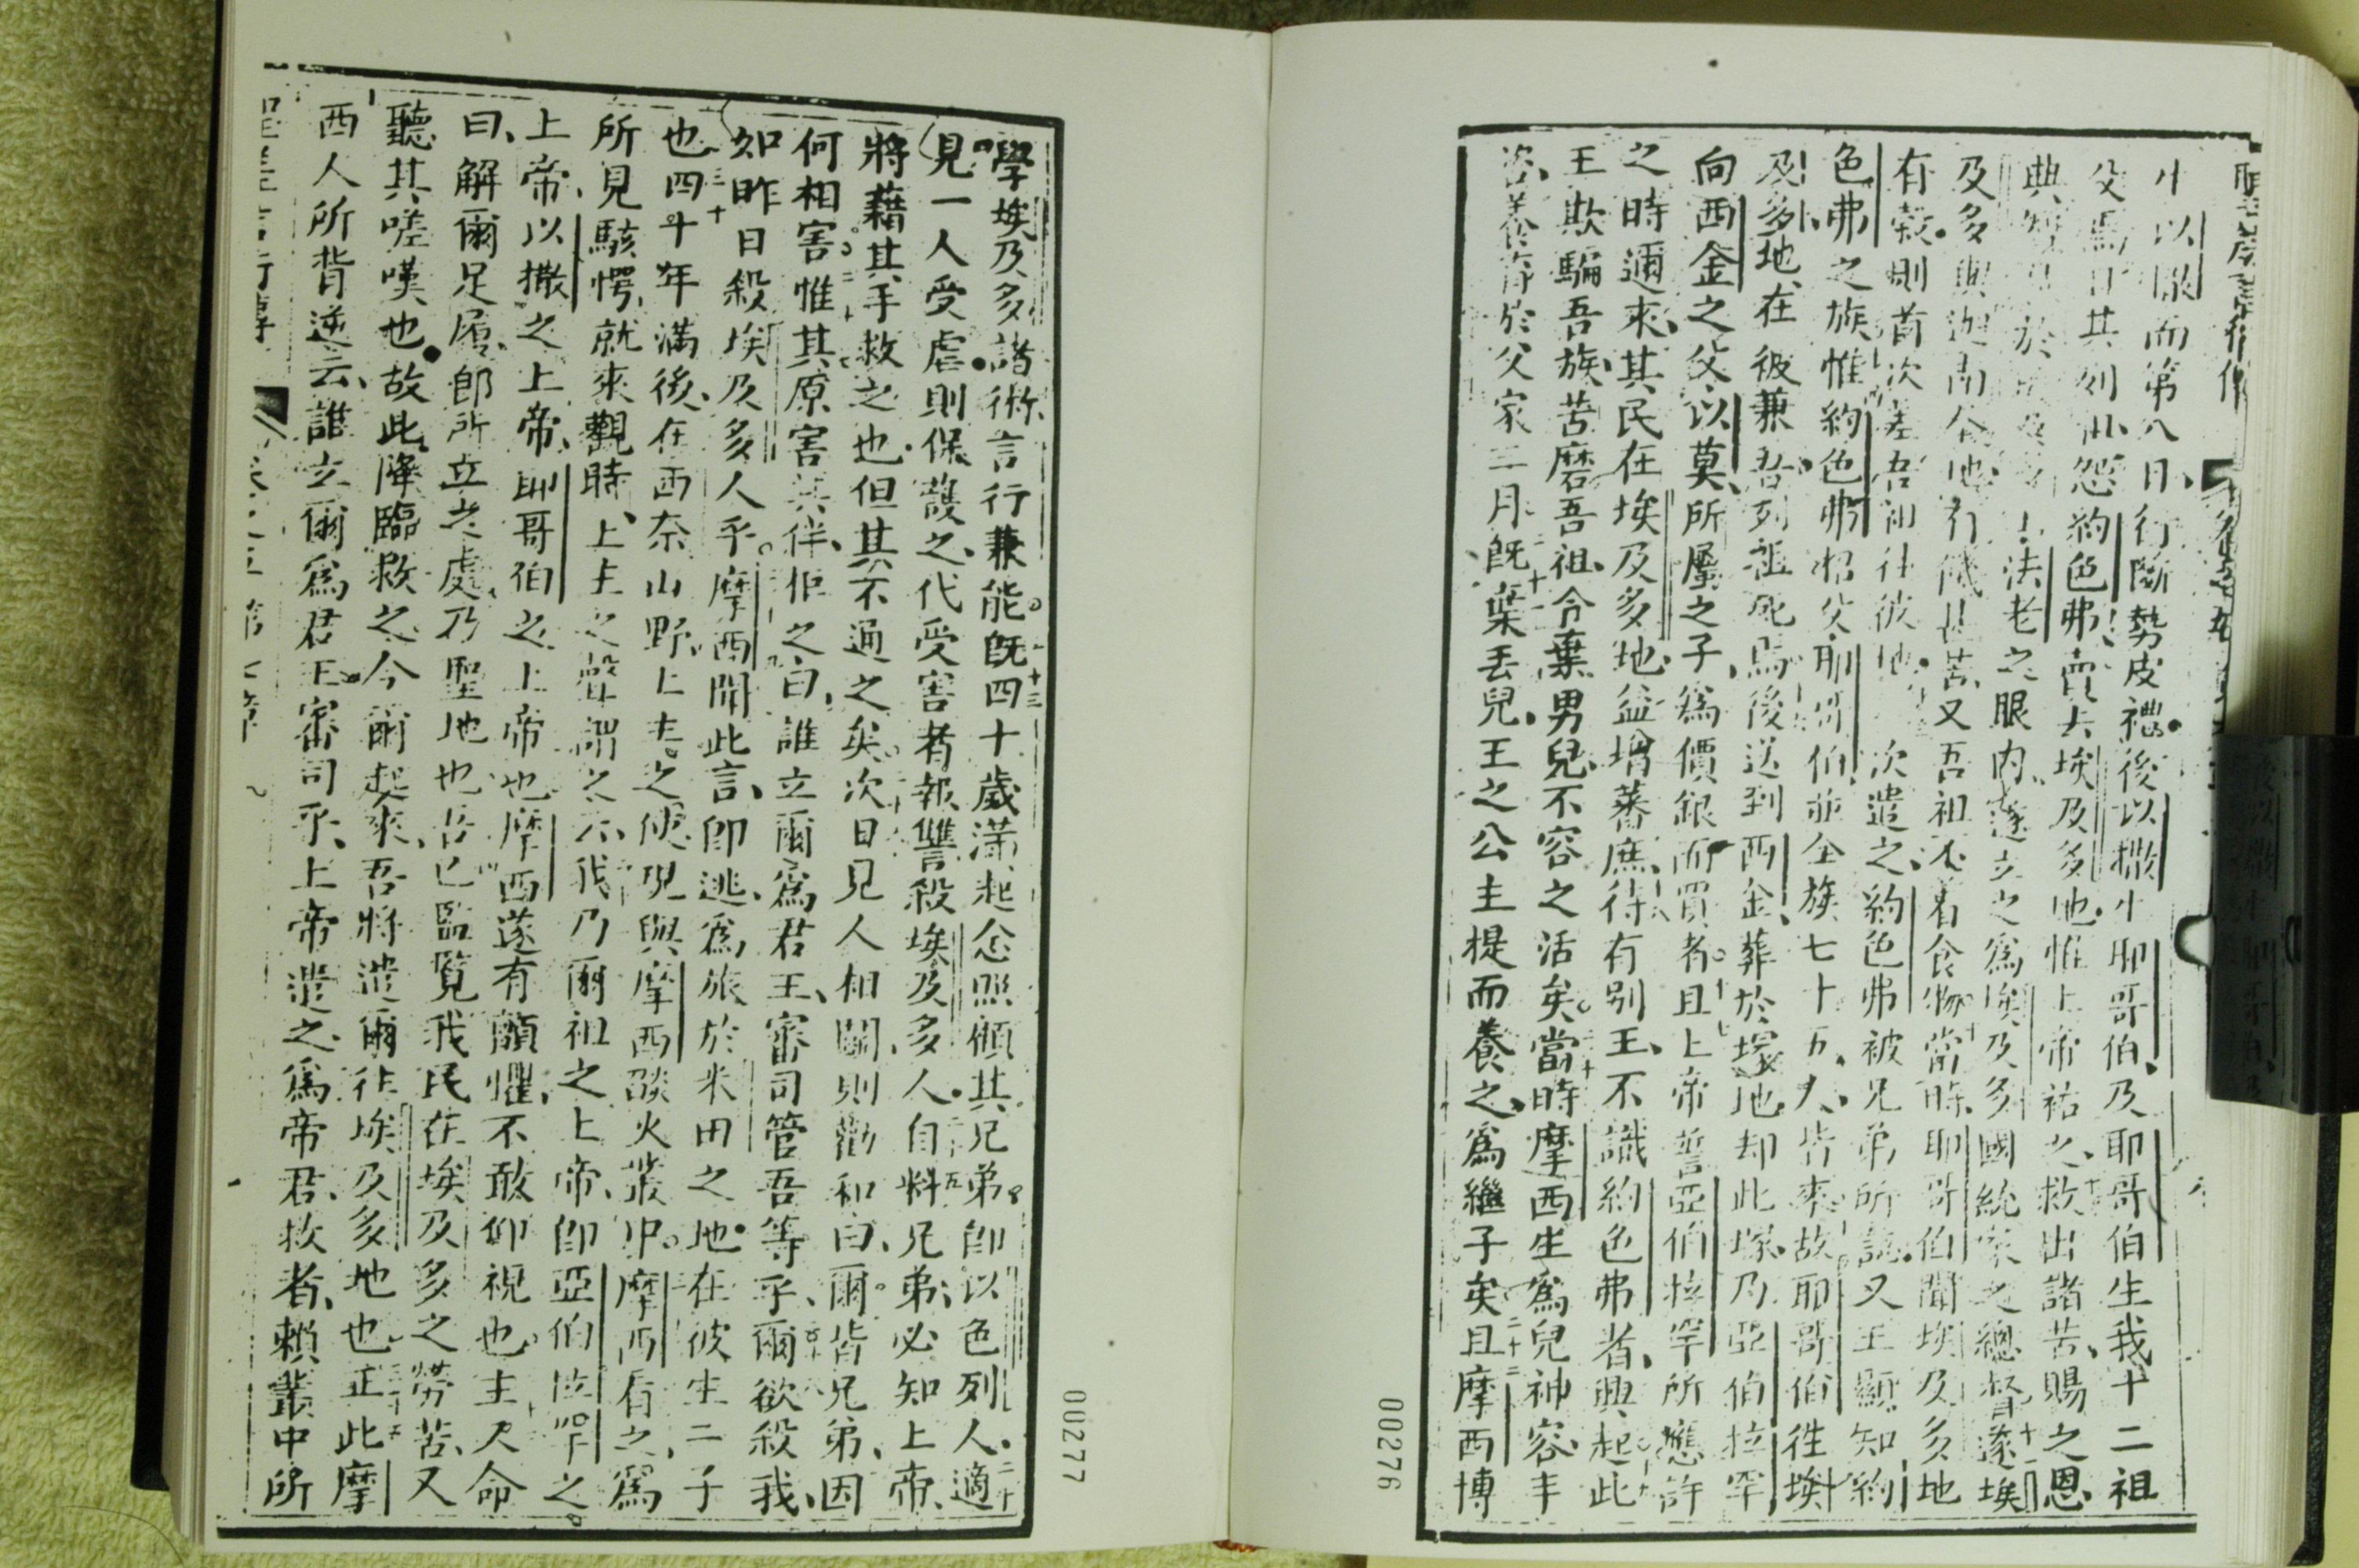 聖差言行傳
卷之五
生以撒而第八日行斷勢皮禮後以撒生耶哥伯及耶哥伯生我十二祖
父焉且其列祖怨約色弗賣去埃及多地惟上帝祐之救出諸苦賜之恩
典智 於 法老之眼內遂立之為埃及多國統家之總督遂埃
及多與迦南全地有饑甚苦又吾祖不着食物當時耶哥伯聞埃及多地
有穀則首次差吾祖往彼地 次遣之約色弗被兄弟所認又王顯知約
色弗之族惟約色弗招父耶哥伯並全族七十五人皆來故耶哥伯徃埃
及多地在彼兼吾列祖死焉後送到西金葬於塚地却此塚乃亞伯拉罕
向西金之父以莫所屬之子為價銀而買者且上帝誓亞伯拉罕所應許
之時邇來其民在埃及多地益增蕃庶待有別王不識約色弗者興起此
王欺騙吾族苦磨吾祖令棄男兒不容之活矣當時摩西生為兒神容丰
姿養育於父家三月既棄丟兒王之公主提而養之為繼子矣且摩西博
00276
學埃及多諸術言行兼能既四十歲滿起念照顧其兄弟卽以色列人適
見一人受虐則保護之代受害者報讐殺埃及多人自料兄弟必知上帝
將藉其手救之也但其不通之矣次日見人相鬬則勸和曰爾皆兄弟因
何相害惟其原害其伴拒之曰誰立爾為君王審司管吾等乎爾欲殺我
如昨日殺埃及多人乎摩西聞此言卽逃為旅於米田之地在彼生二子
也四十年滿後在西奈山野上主之使現與摩西燄火叢中摩西看之為
所見駭愕就來觀時上主之聲謂之云我乃爾祖之上帝卽亞伯拉罕之
上帝以撒之上帝耶哥伯之上帝也摩西遂有顫懼不敢仰視也主又命
曰解爾足履郎所立之處乃聖地也吾已監覽我民在埃及多之勞苦又
聽其嗟嘆也故此降臨救之今爾起來吾將遣爾往埃及多地也正此摩
西人所背逆云誰立爾為君王審司乎上帝遣之為帝君救者賴叢中所
聖差言行傳
卷之五 第七章
00277